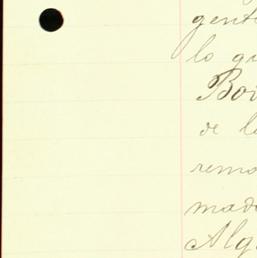 gent
lo qu
Bo
de l
rem
mad
Alg